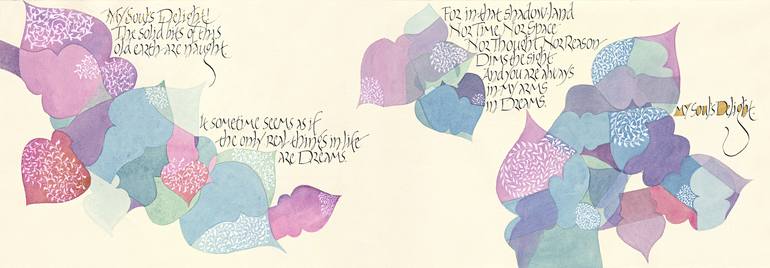 My Soul's Delight!
The solid bits of this
old earth are naught
It sometime seems as if
the only real things in life
are Dreams.
For in that shadow land
Nor Time, Nor Space
Nor Thought, Nor Reason
Dims the sight
And you are always
in my arms
in Dreams.
My Soul's Delight